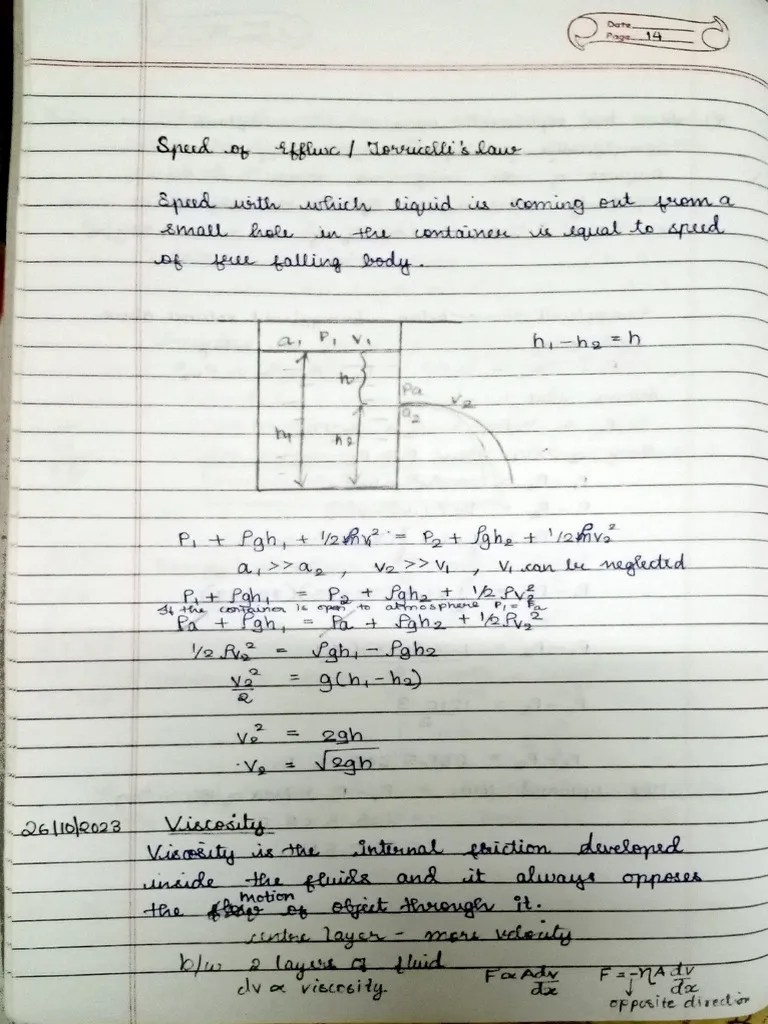 Date
Page 14
Speed of Efflux / Torricelli's law
Speed with which liquid is coming out from a
small hole in the container is equal to speed
of free falling body.
a₁ P₁ v₁
h₁ - h₂ = h
h
Pa
v₂
a₂
h₁
h₂
P₁ + ρgh₁ + 1/2 ρv₁² = P₂ + ρgh₂ + 1/2 ρv₂²
a₁ >> a₂ , v₂ >> v₁ , v₁ can be neglected
P₁ + ρgh₁ = P₂ + ρgh₂ + 1/2 ρv₂²
If the container is open to atmosphere P₁ = Pa
Pa + ρgh₁ = Pa + ρgh₂ + 1/2 ρv₂²
1/2 ρv₂² = ρgh₁ - ρgh₂
v₂²/2 = g(h₁-h₂)
v₂² = 2gh
v₂ = √2gh
26/10/2023 Viscosity
Viscosity is the internal friction developed
inside the fluids and it always opposes
the motion of object through it.
centre layer - more velocity
b/w 2 layers of fluid
dv ∝ viscosity.
F ∝ A dv/dx F = -ηA dv/dx
opposite direction